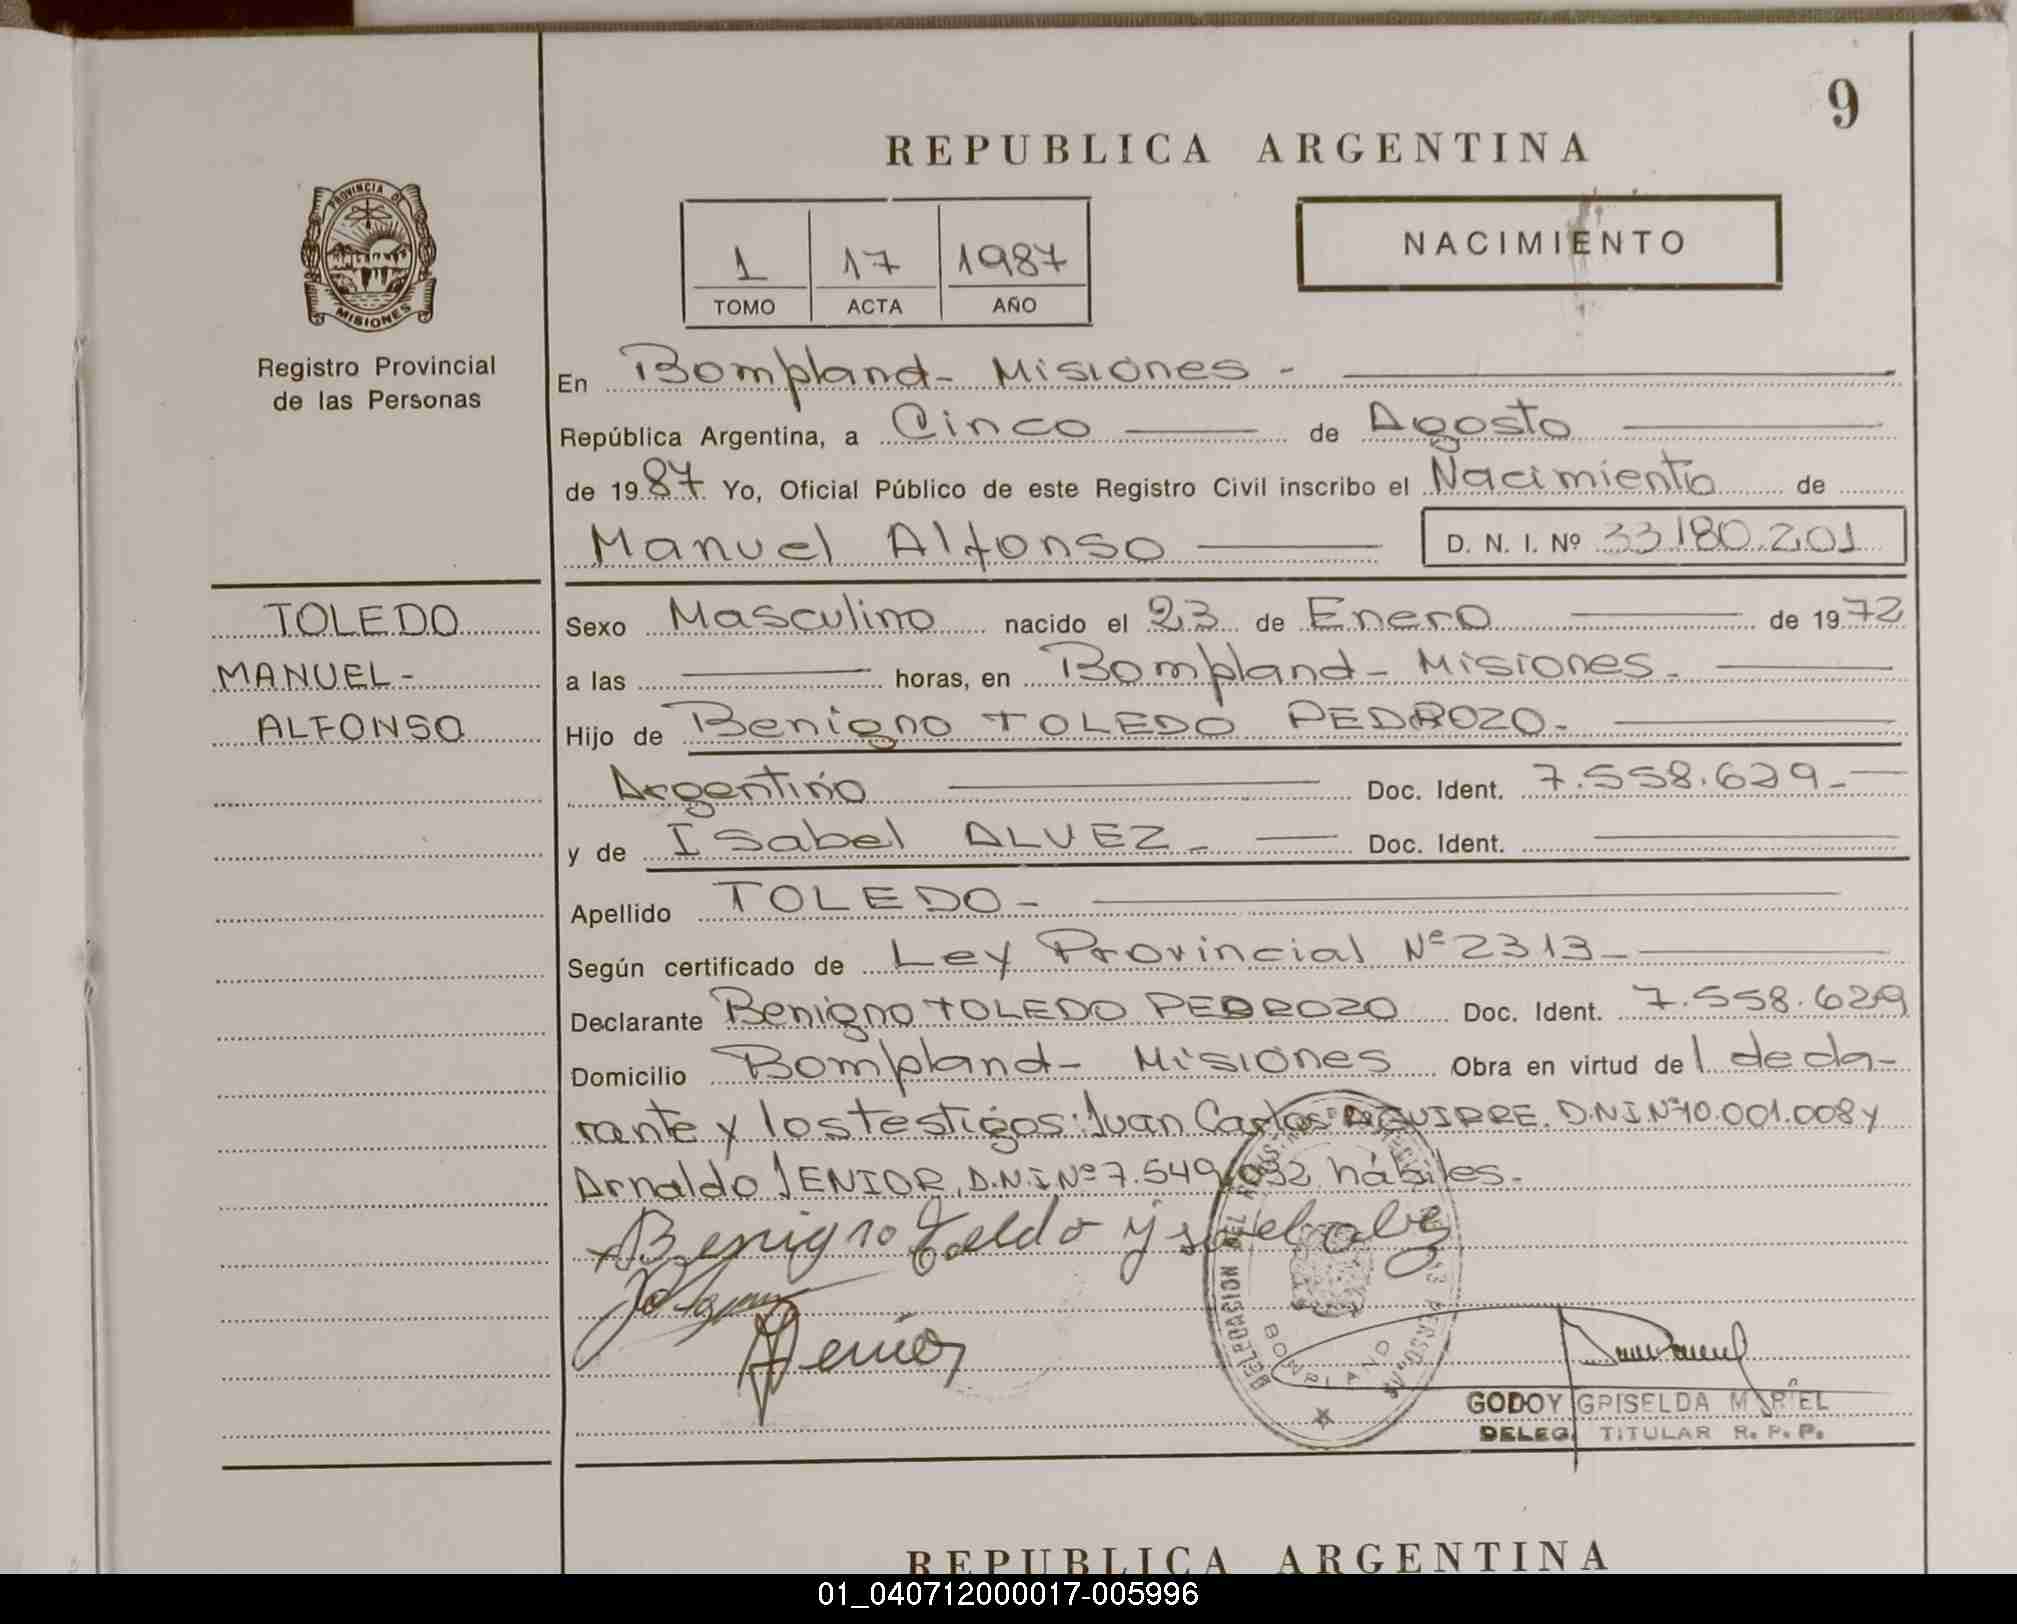 9
REPUBLICA ARGENTINA
PROVINCIA DE
MISIONES
Registro Provincial
de las Personas
1 17 1987
TOMO ACTA AÑO
NACIMIENTO
En Bompland - Misiones -
República Argentina, a Cinco de Agosto
de 1987 Yo, Oficial Público de este Registro Civil inscribo el Nacimiento de
Manuel Alfonso D. N. I. Nº 33180.201
TOLEDO
MANUEL -
ALFONSO
Sexo Masculino nacido el 23 de Enero de 1972
a las horas, en Bompland - Misiones -
Hijo de Benigno TOLEDO PEDROZO -
Argentino Doc. Ident. 7.558.629 -
y de Isabel ALVEZ - Doc. Ident.
Apellido TOLEDO -
Según certificado de Ley Provincial Nº 2313 -
Declarante Benigno TOLEDO PEDROZO Doc. Ident. 7.558.629
Domicilio Bompland - Misiones Obra en virtud del decla-
rante y los testigos: Juan Carlos AGUIRRE. D.N.I. Nº 10.001.008 y
Arnaldo JENIOR, D.N.I Nº 7.549.032 hábiles.
Benigno
BOMPLAND
GODOY GRISELDA MARIEL
DELEG. TITULAR R. P. P.
REPUBLICA ARGENTINA
01_040712000017-005996